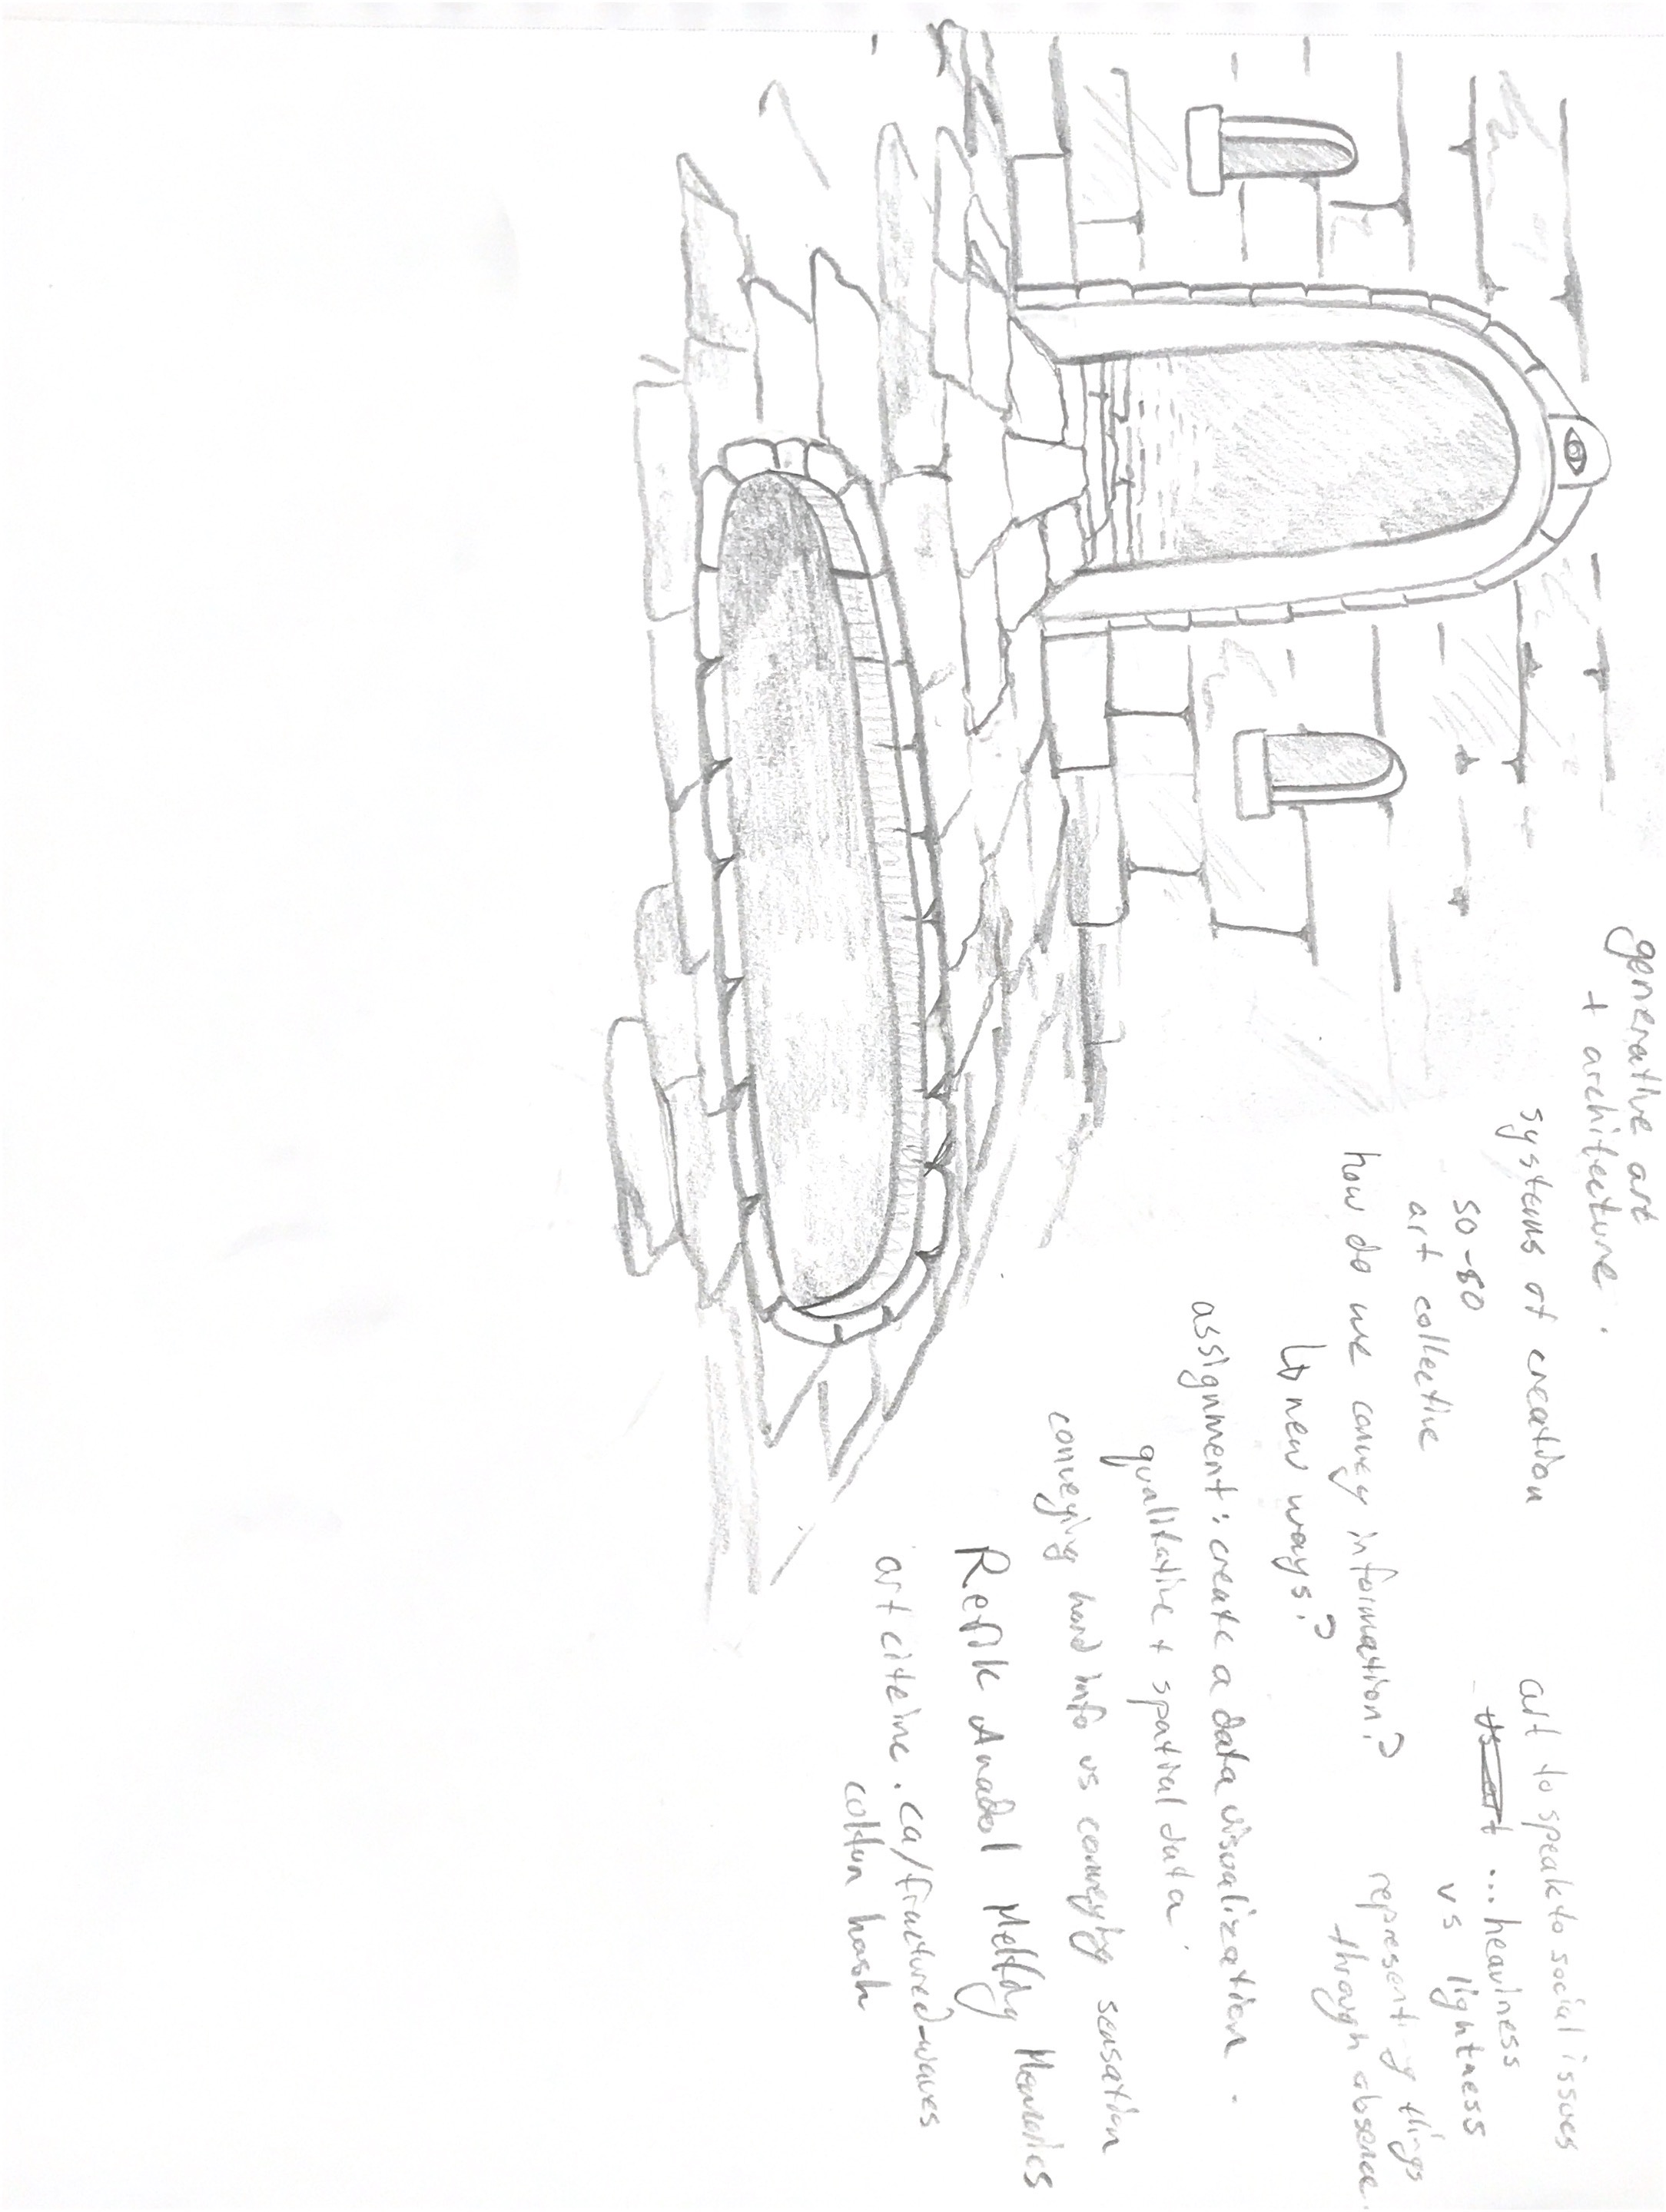 generative art
+ architecture.
systems of creation
50-80
art collective
how do we convey information?
↳ new ways?
assignment: create a data visualization.
qualitative + spatial data.
conveying hard info vs conveying sensation
Refik Anadol Melting Memories
art citeine.ca/fractured-waves
colton hash
art to speak to social issues
... heaviness
vs lightness
representing things
through absence.